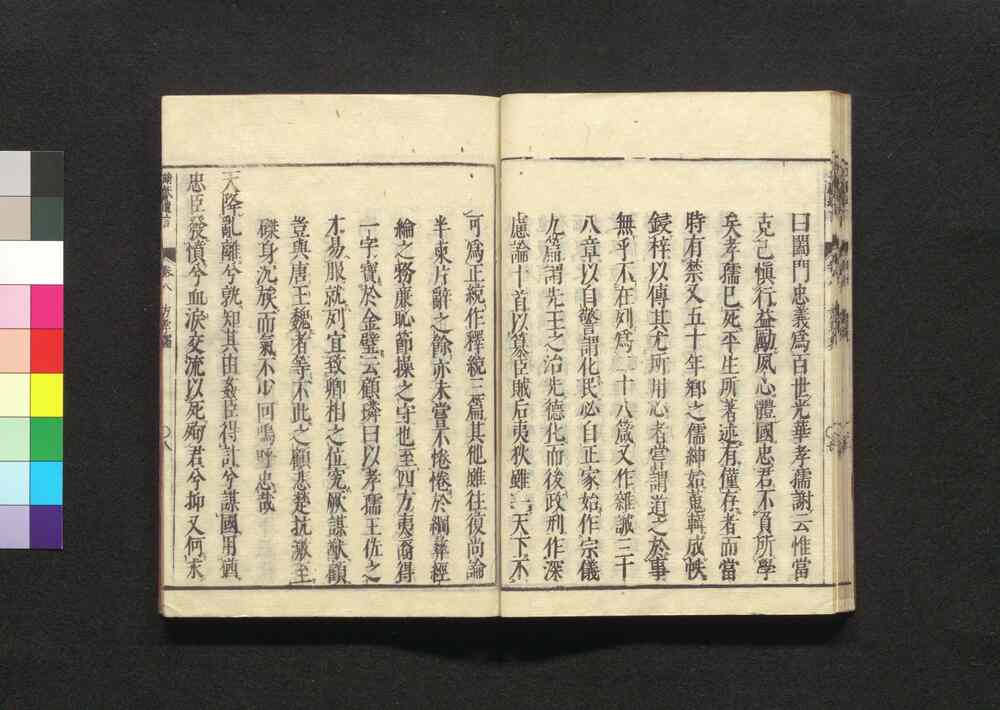 曰閫門忠義爲百世光華孝孺謝云惟當
克己愼行益勵夙心體國忠君不負所學
矣孝孺已死平生所著述有僅存者而當
時有禁又五十年鄉之儒紳始蒐輯成帙
鋟梓以傳其尤所用心者嘗謂道之於事
無乎不在列爲二十八箴又作雜誡三十
八章以自警謂化民必自正家始作宗儀
九篇謂先王之治先德化而後政刑作深
慮論十首以簒臣賊后夷狄雖一天下不
可爲正統作釋統三篇其他雖往復尚論
半柬片辭之餘亦未嘗不惓惓於綱彝經
綸之務廉恥節操之守也至四方夷裔得
一字寳於金璧云顧璘曰以孝孺王佐之
才易服就列宜致卿相之位究厥謀猷顧
豈與唐王魏者等不此之顧悲楚抗激至
磔身沈族而氣不少回嗚呼忠哉
天降亂離兮孰知其由姦臣得計兮謀國用猶
忠臣發憤兮血淚交流以死殉君兮抑又何求
卷八
方孝孺
〇八